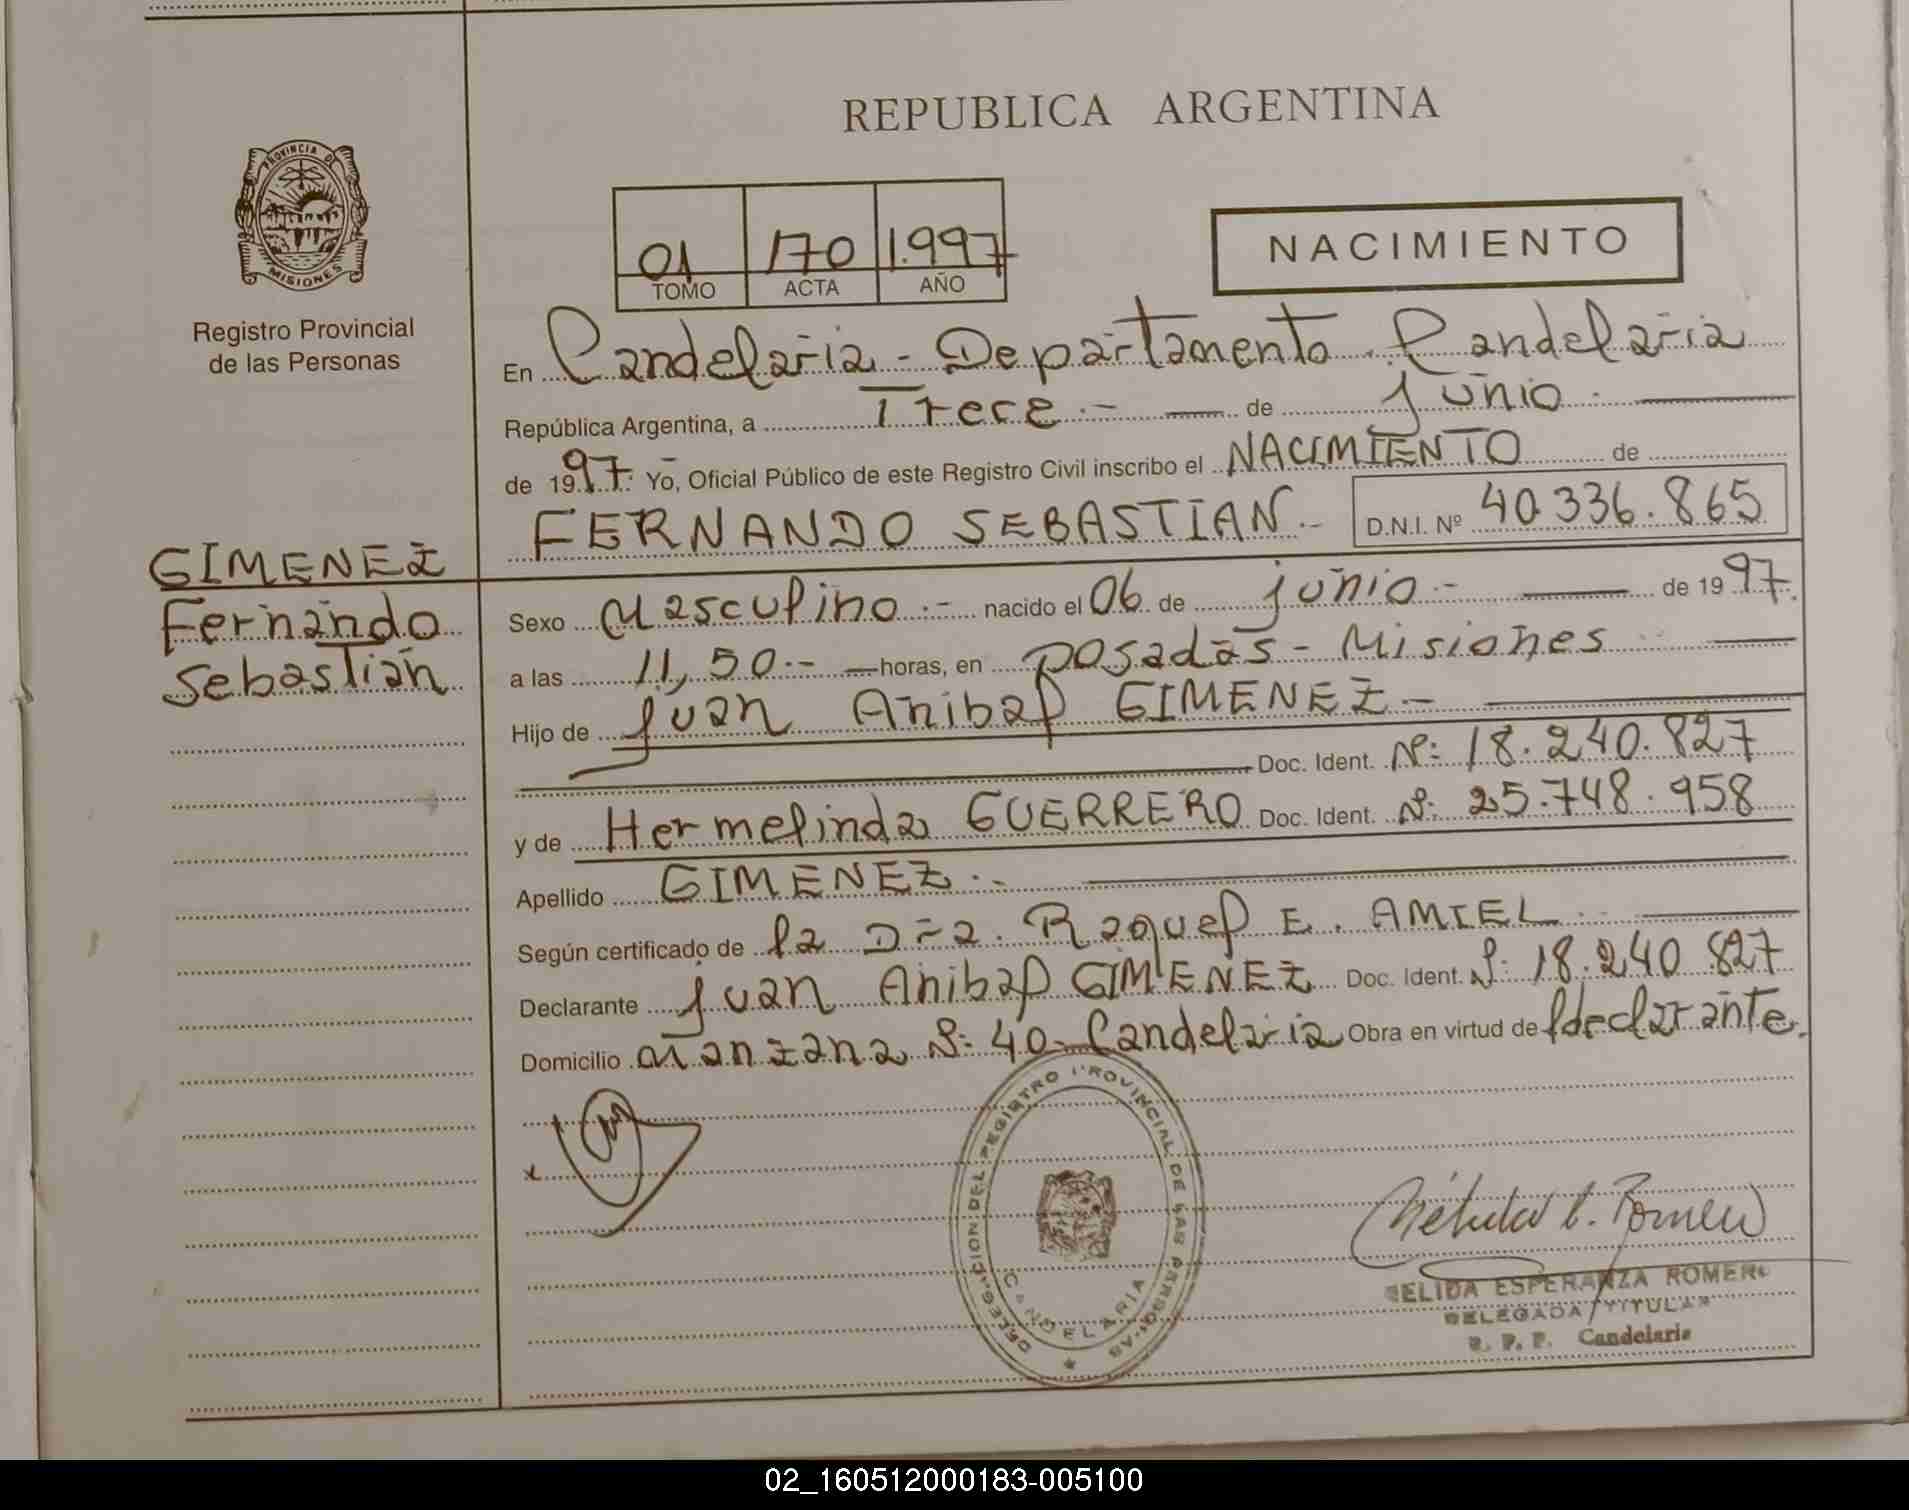 REPUBLICA ARGENTINA
PROVINCIA DE
MISIONES
Registro Provincial
de las Personas
01 170 1.997
TOMO ACTA AÑO
NACIMIENTO
En Candelaria - Departamento Candelaria
República Argentina, a Trece .- de junio .
de 1997. Yo, Oficial Público de este Registro Civil inscribo el NACIMIENTO de
FERNANDO SEBASTIAN.- D.N.I. Nº 40.336.865
GIMENEZ
Fernando
Sebastian
Sexo Masculino .- nacido el 06 de junio .- de 1997.
a las 11,50.- horas, en posadas - Misiones
Hijo de Juan Anibal GIMENEZ -
Doc. Ident. Nº: 18.240.827
y de Hermelinda GUERRERO Doc. Ident. Nº: 25.748.958
Apellido GIMENEZ .-
Según certificado de la Dra. Raquel E. AMIEL .
Declarante Juan Anibal GIMENEZ Doc. Ident. Nº: 18.240 827
Domicilio Manzana Nº: 40- Candelaria Obra en virtud de declarante.
x
DELEGACION DEL REGISTRO PROVINCIAL DE LAS PERSONAS
CANDELARIA
NELIDA ESPERANZA ROMERO
DELEGADA TITULAR
R. P. P. Candelaria
02_160512000183-005100